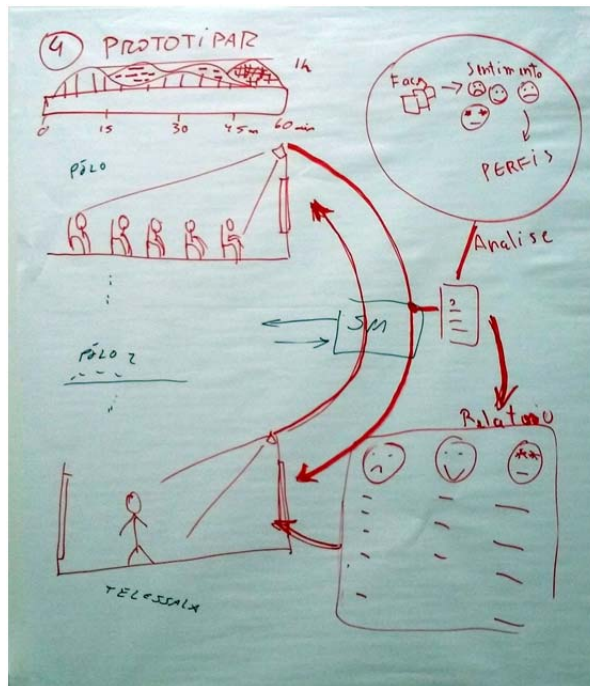 4 PROTOTIPAR
1h
0 15 30 45m 60 min
Faces
Sentimento
PERFIS
Análise
PÓLO
SM
PÓLO 2
Relatório
TELESSALA